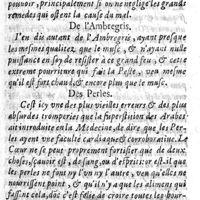 pouvoir, principalement si on ne neglige les grands
remedes qui ostent la cause du mal.
De l'Ambregris.
J'en dis autant de l'Ambregris, ayant presque
les mesmes qualitez que le musc, & n'ayant nulle
puissance en soy de resister à ce grand feu, & ceste
extreme pourriture qui fait la Peste, veu mesme
qu'il est fort chaud, & encore plus que le musc.
Des Perles.
C'est icy une des plus vieilles erreurs & des plus
absurdes tromperies que la superstition des Arabes
ait introduite en la Medecine, de dire que les Per-
les ayent une faculté cardiaque & corroborative. Le
Cœur ne se peut proprement fortifier que de deux
choses, sçavoir est, de sang, ou d'esprit: or est-il que
les perles ne font ny l'un ny l'autre, veu qu'elles ne
nourrissent point, & qu'il n'y a que les aliments qui
facent cela, donc c'est folie de croire toutes les bour-